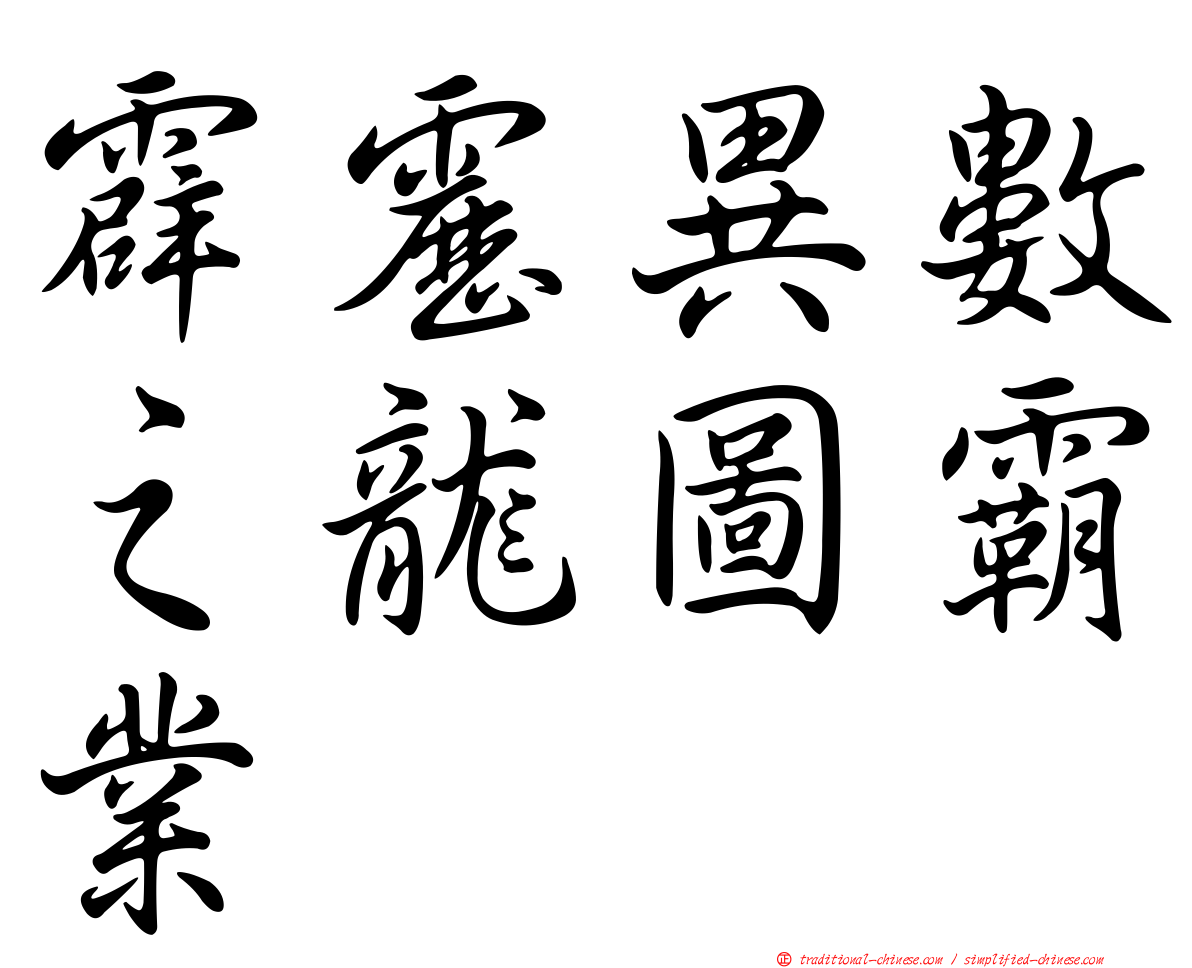 霹靂異數
之龍圖霸
業
㊣ traditional-chinese.com / simplified-chinese.com